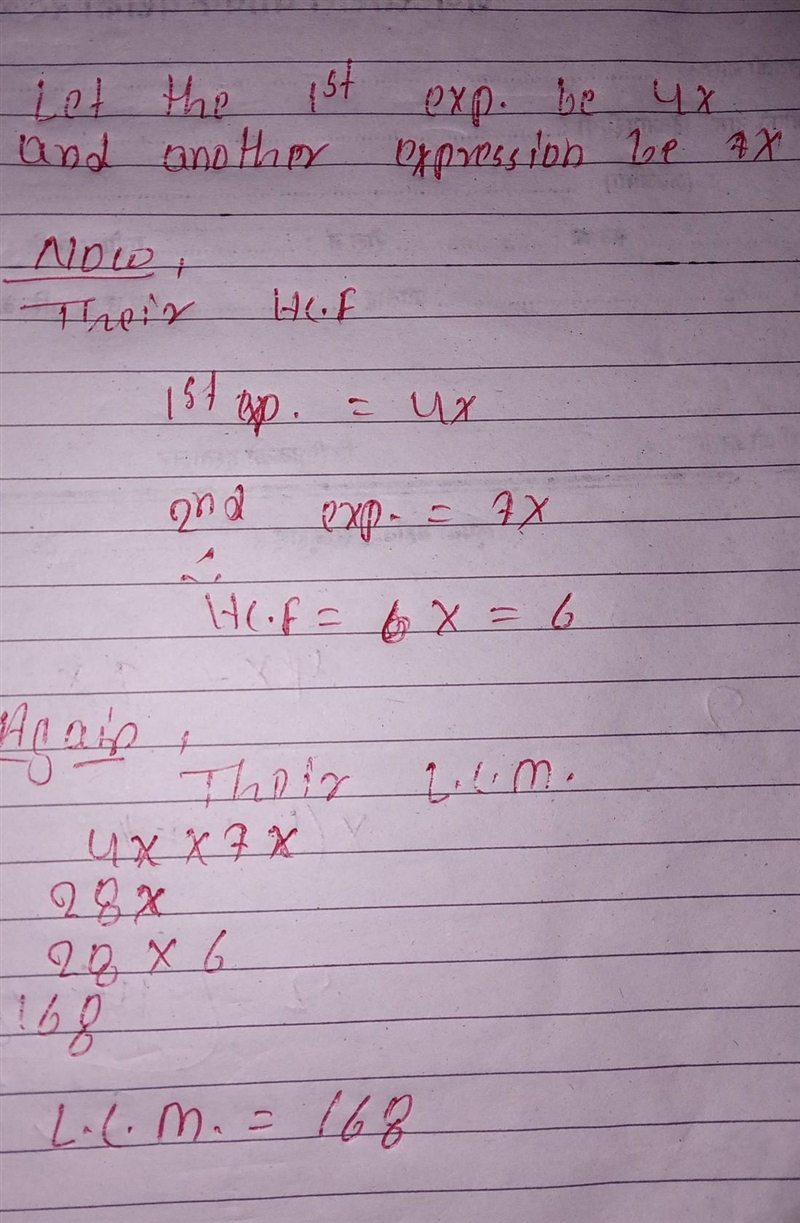 Let the 1st exp. be 4x
and another expression be 7x
Now,
Their H.C.F
1st exp. = 4x
2nd exp. = 7x
∴
H.C.F = 6 x = 6
Again,
Their L.C.M.
4x × 7x
28x
28 × 6
168
L.C.M. = 168